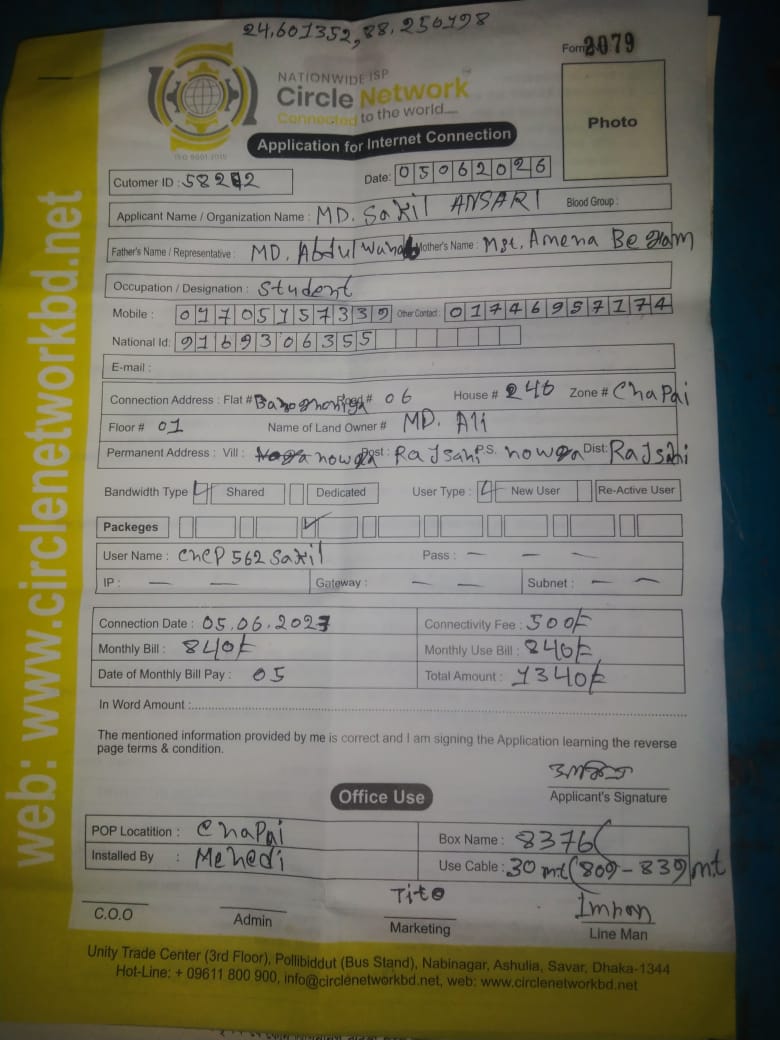 24.601352, 88.250198
Form 2079
NATIONWIDE ISP
Circle Network
Connected to the world....
ISO 9001:2015
Application for Internet Connection
Photo
Cutomer ID : 58212
Date: 05062026
Applicant Name / Organization Name : MD. Sakil ANSARI Blood Group :
Father's Name / Representative : MD. Abdul Wahab Mother's Name : Mst. Amena Begam
Occupation / Designation : Student
Mobile : 01705157339 Other Contact : 01746957174
National Id: 9169306355
E-mail :
Connection Address : Flat # Road # 06 House # 246 Zone # Chapai
Floor # 01 Name of Land Owner # MD. Ali
Permanent Address : Vill : nowga Post : RaJsahi P.S. nowga Dist: RaJsahi
Bandwidth Type Shared Dedicated User Type : New User Re-Active User
Packeges ✓
User Name : CHCP 562 Sakil Pass : — — —
IP : — — Gateway : — — Subnet : — —
Connection Date : 05.06.2023 Connectivity Fee : 500/=
Monthly Bill : 840/= Monthly Use Bill : 840/=
Date of Monthly Bill Pay : 05 Total Amount : 1340/=
In Word Amount :
The mentioned information provided by me is correct and I am signing the Application learning the reverse
page terms & condition.
Applicant's Signature
Office Use
POP Locatition : Chapai Box Name : 8376
Installed By : Mehedi Use Cable : 30 mt (809-839) mt
Tito Imran
C.O.O Admin Marketing Line Man
Unity Trade Center (3rd Floor), Pollibiddut (Bus Stand), Nabinagar, Ashulia, Savar, Dhaka-1344
Hot-Line: + 09611 800 900, info@circlenetworkbd.net, web: www.circlenetworkbd.net
web: www.circlenetworkbd.net